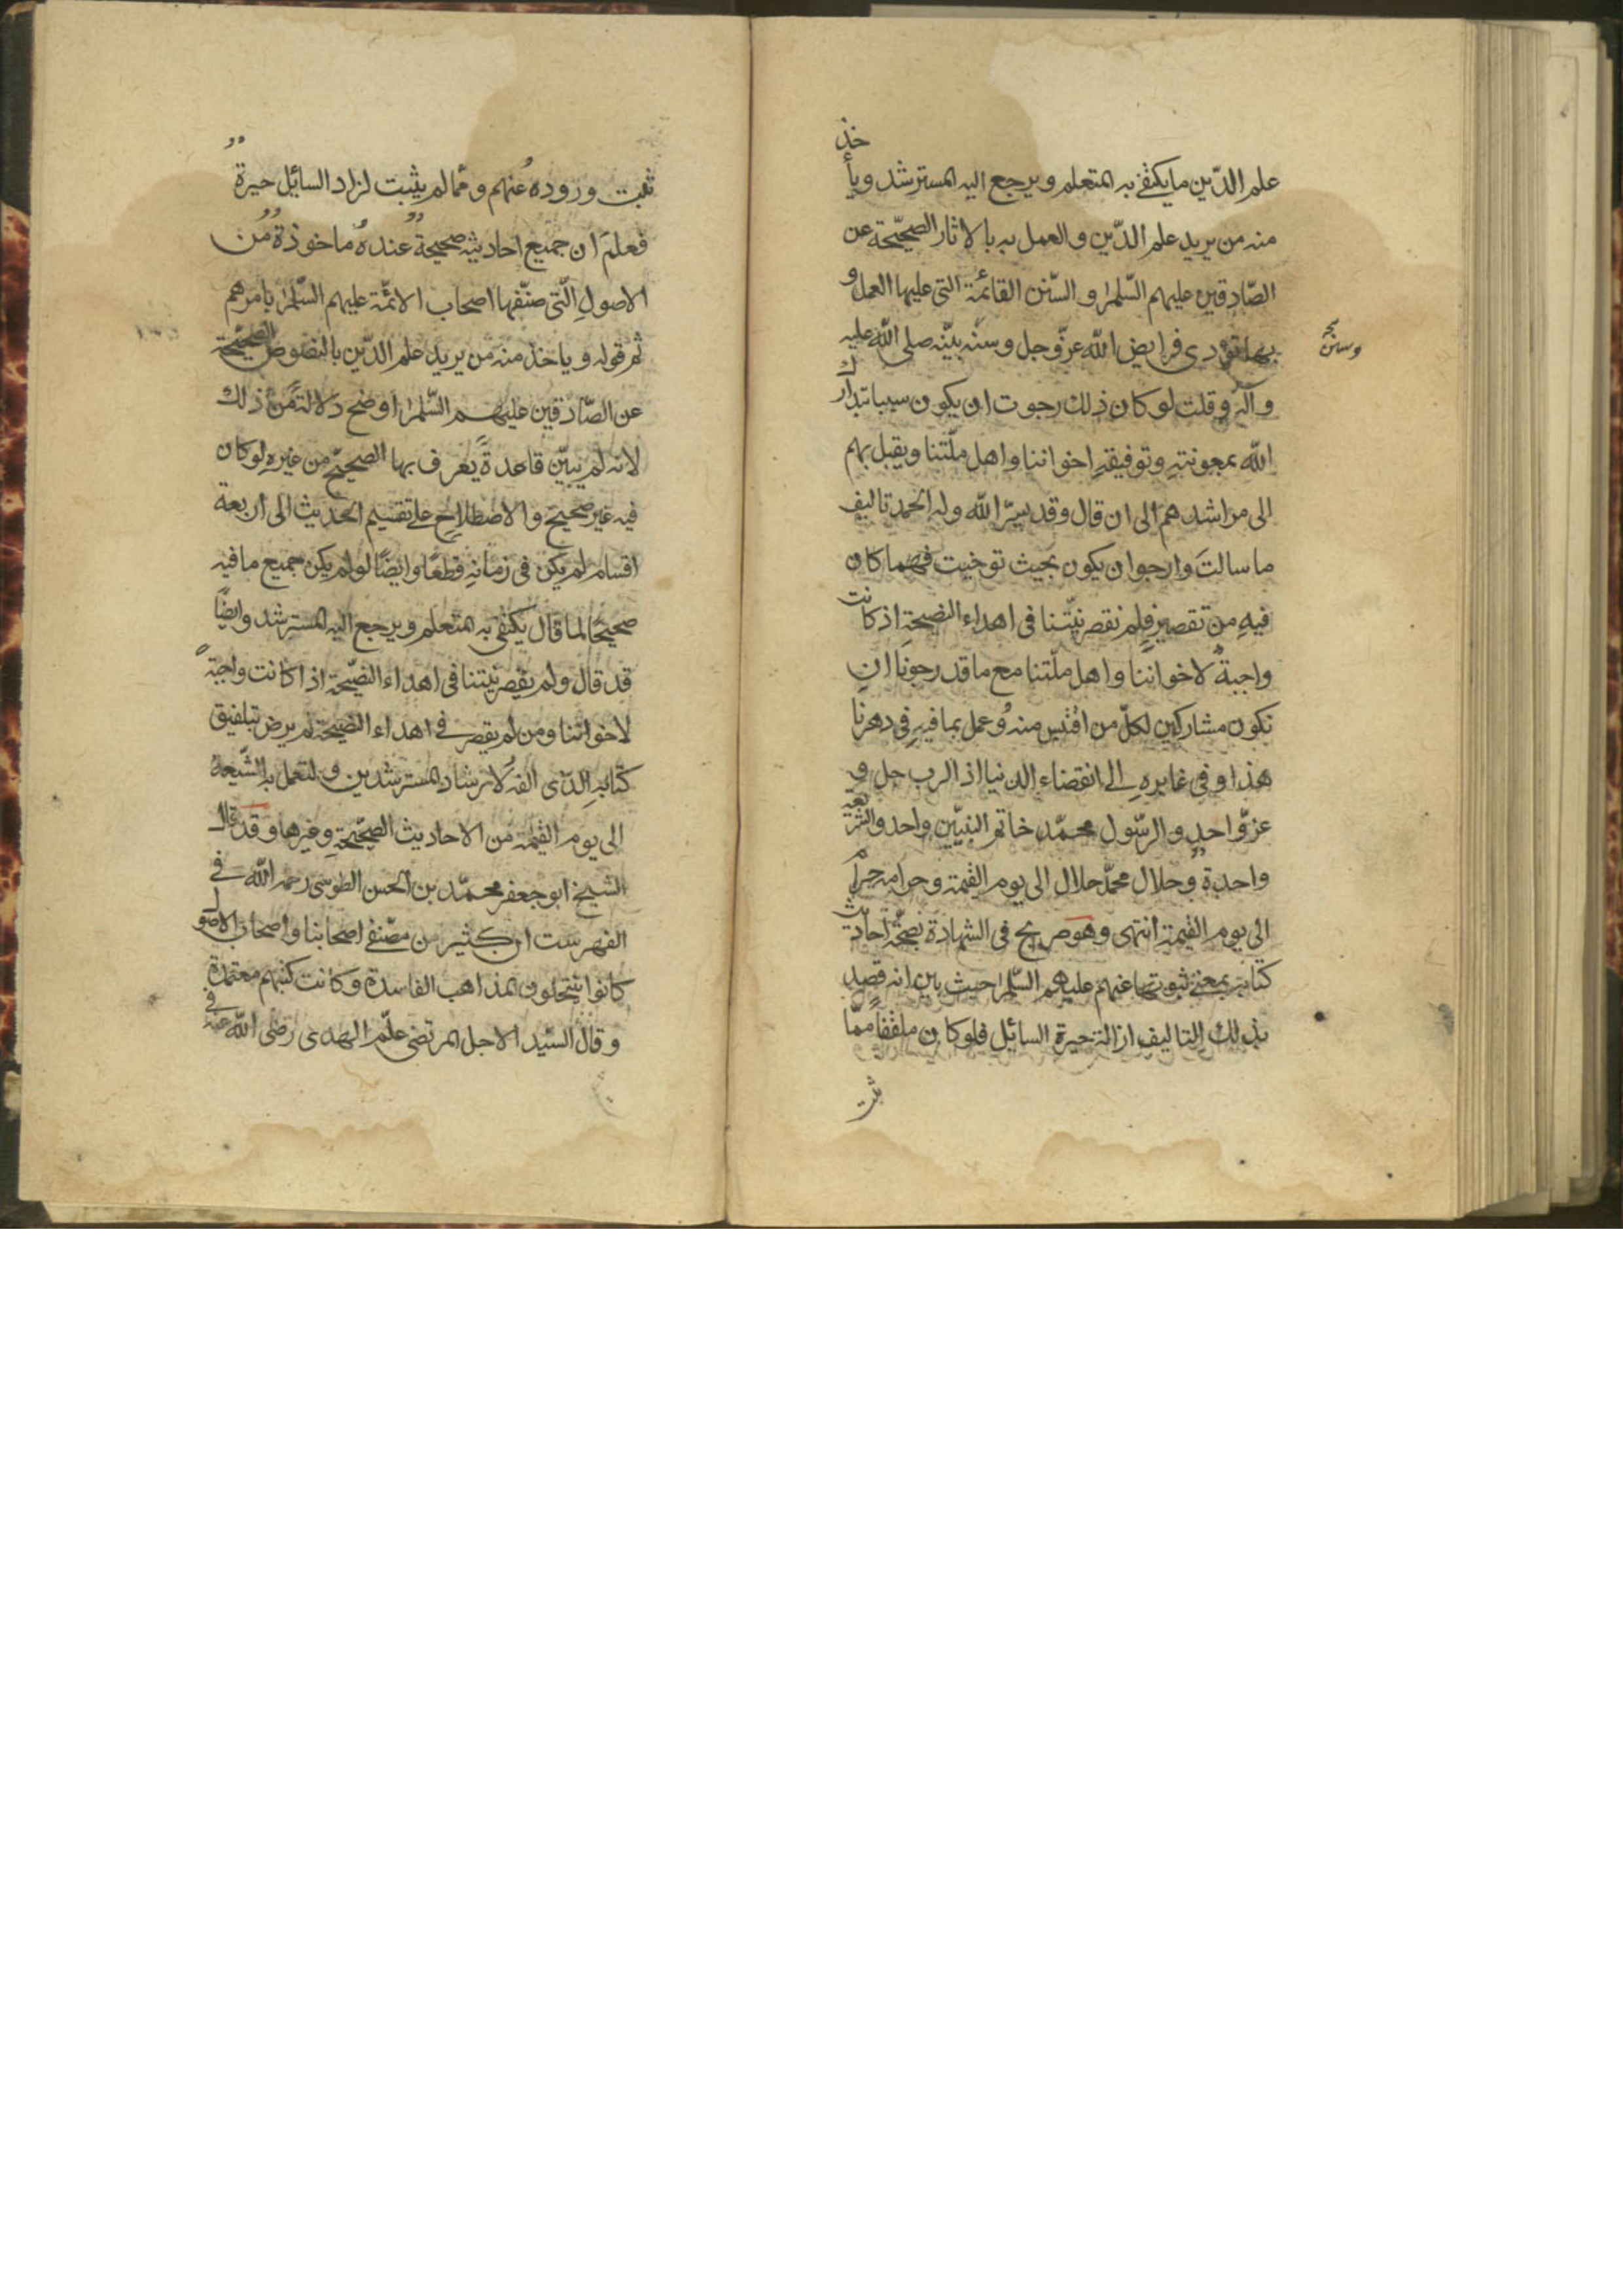 علم الدّين ما يكتفي به المتعلم ويرجع اليه المسترشد ويأخذ
منه من يريد علم الدّين والعمل به بالاثار الصحيّحة عن
الصّادقين عليهم السّلم و السّنن القائمة التي عليها العمل و
بها تؤدى فرايض الله عزّ وجل وسنّة نبيّه صلى الله عليه
وسنن
وآله وقلت لو كان ذلك رجوت ان يكون سببا يتدارك
الله بمعونته وتوفيقه اخواننا واهل ملّتنا ويقبل بهم
الى مراشدهم الى ان قال وقد يسّر الله وله الحمد تاليف
ما سالت وارجو ان يكون بحيث توخيت فمهما كان
فيه من تقصير فلم نقصر نيّتنا في اهداء النصيحة اذ كانت
واجبة لاخواننا واهل ملّتنا مع ما قد رجونا ان
نكون مشاركين لكلّ من اقتبس منه وعمل بما فيه في دهرنا
هذا وفي غابره الى انقضاء الدنيا اذ الرب جل و
عزّ واحد والرّسول محمّد خاتم النبيّين واحد والشريعة
واحدة وحلال محمّد حلال الى يوم القيمة وحرامه حرام
الى يوم القيمة انتهى وهو صريح في الشهادة بصحّة احاديث
كتابه بمعنى ثبوتها عنهم عليهم السّلم حيث بين انه قصد
بذلك التاليف ازالة حيرة السائل فلو كان ملفقاً ممّا
ثبت
ثبت وروده عنهم وممّا لم يثبت لزاد السايل حيرة
فعلم ان جميع احاديثه صحيحة عنده ماخوذة من
الاصول الّتى صنّفها اصحاب الائمّة عليهم السّلم بامرهم
ثم قوله وياخذ منه من يريد علم الدّين بالنصوص الصحيّحة
عن الصّادقين عليهم السّلم اوضح دلالة من ذلك
لانه لم يبيّن قاعدة يعرف بها الصحيح من غيره لو كان
فيه غير صحيح والاصطلاح على تقسيم الحديث الى اربعة
اقسام لم يكن في زمانه قطعًا وايضًا لو لم يكن جميع ما فيه
صحيحًا لما قال يكتفى به المتعلم ويرجع اليه المسترشد وايضًا
قد قال ولم يقصر نيّتنا في اهداء النصيّحة اذا كانت واجبة
لاخواننا ومن لم يقصر في اهداء النصيحة لم يرض بتلفيق
كتابه الذى الفه لارشاد المسترشدين ولتعمل به الشّيعة
الى يوم القيمة من الاحاديث الصّحيحة وغيرها وقد قال
الشيخ ابو جعفر محمّد بن الحسن الطوسى رحمه الله في
الفهرست ان كثير من مصّنفي اصحابنا واصحاب الاصول
كانوا ينتحلون المذاهب الفاسدة وكانت كتبهم معتمدة
وقال السّيد الاجل المرتضى علّم الهدى رضى الله عنه في